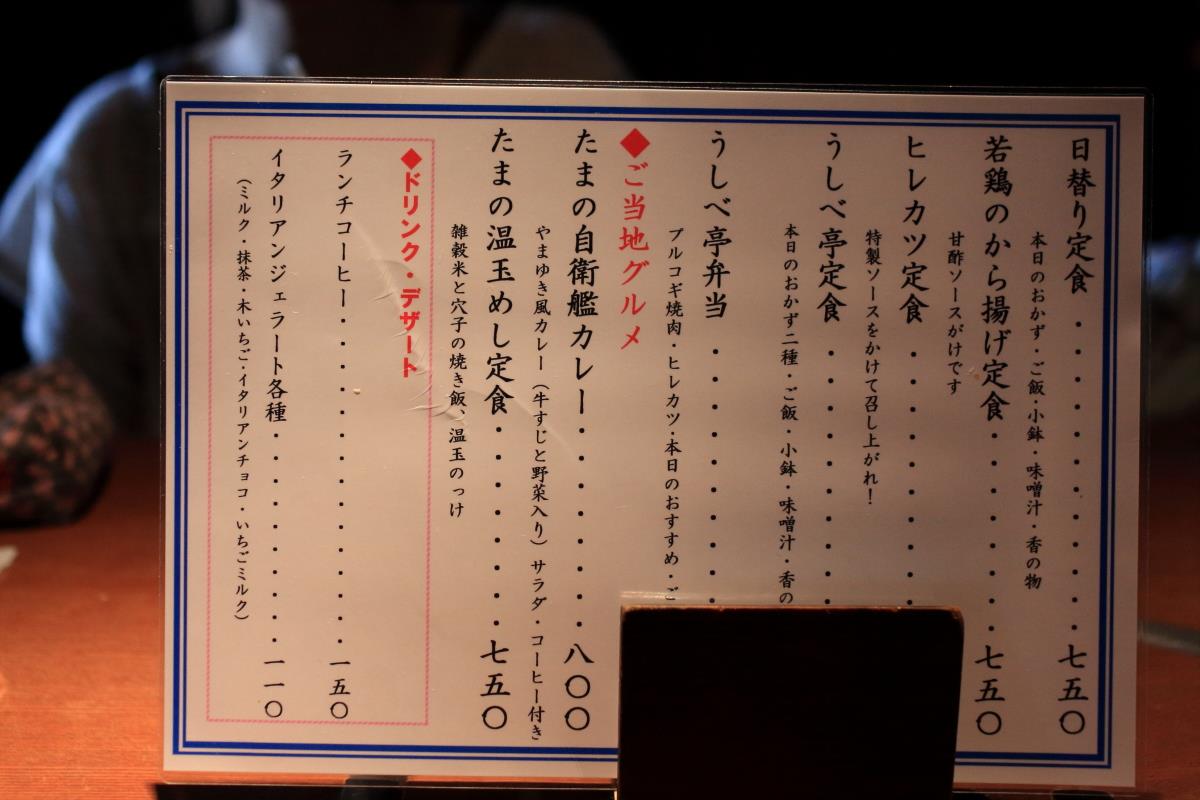 日替り定食・・・・・・・・・・・・七五〇
本日のおかず・ご飯・小鉢・味噌汁・香の物
若鶏のから揚げ定食・・・・・・・・七五〇
甘酢ソースがけです
ヒレカツ定食・・・・・・・・・・
特製ソースをかけて召し上がれ！
うしべ亭定食・・・・・・・・・・
本日のおかず二種・ご飯・小鉢・味噌汁・香の
うしべ亭弁当・・・・・・・・・・
プルコギ焼肉・ヒレカツ・本日のおすすめ・ご
◆ご当地グルメ
たまの自衛艦カレー・・・・・・・・八〇〇
やまゆき風カレー（牛すじと野菜入り）サラダ・コーヒー付き
たまの温玉めし定食・・・・・・・・七五〇
雑穀米と穴子の焼き飯、温玉のっけ
◆ドリンク・デザート
ランチコーヒー・・・・・・・・・・・・・・・一五〇
イタリアンジェラート各種・・・・・・・・・・一一〇
（ミルク・抹茶・木いちご・イタリアンチョコ・いちごミルク）